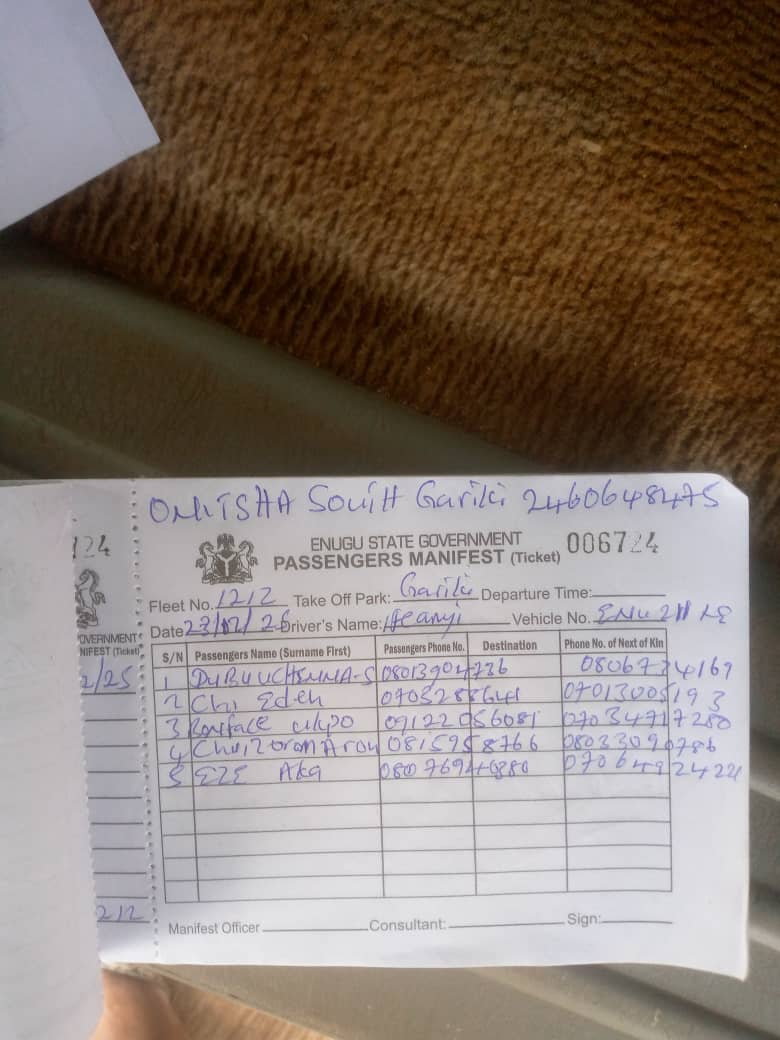 ONITSHA South Gariki 2460648475
124
ENUGU STATE GOVERNMENT
PASSENGERS MANIFEST (Ticket) 006724
Fleet No. 1212 Take Off Park: Gariki Departure Time:
Date 23/02/26 Driver's Name: Ifeanyi Vehicle No. ENU
OVERNMENT
NIFEST (Ticket)
2/25
S/N Passengers Name (Surname First) Passengers Phone No. Destination Phone No. of Next of Kin
1 DUBUUCHENNA-S 08013904736 0806734169
2 Chi Eden 07013005193
3 Boniface 09122056081 07034717280
4 0815958766 08033090786
5 EZE Aka 08076940880
212
Manifest Officer Consultant: Sign: